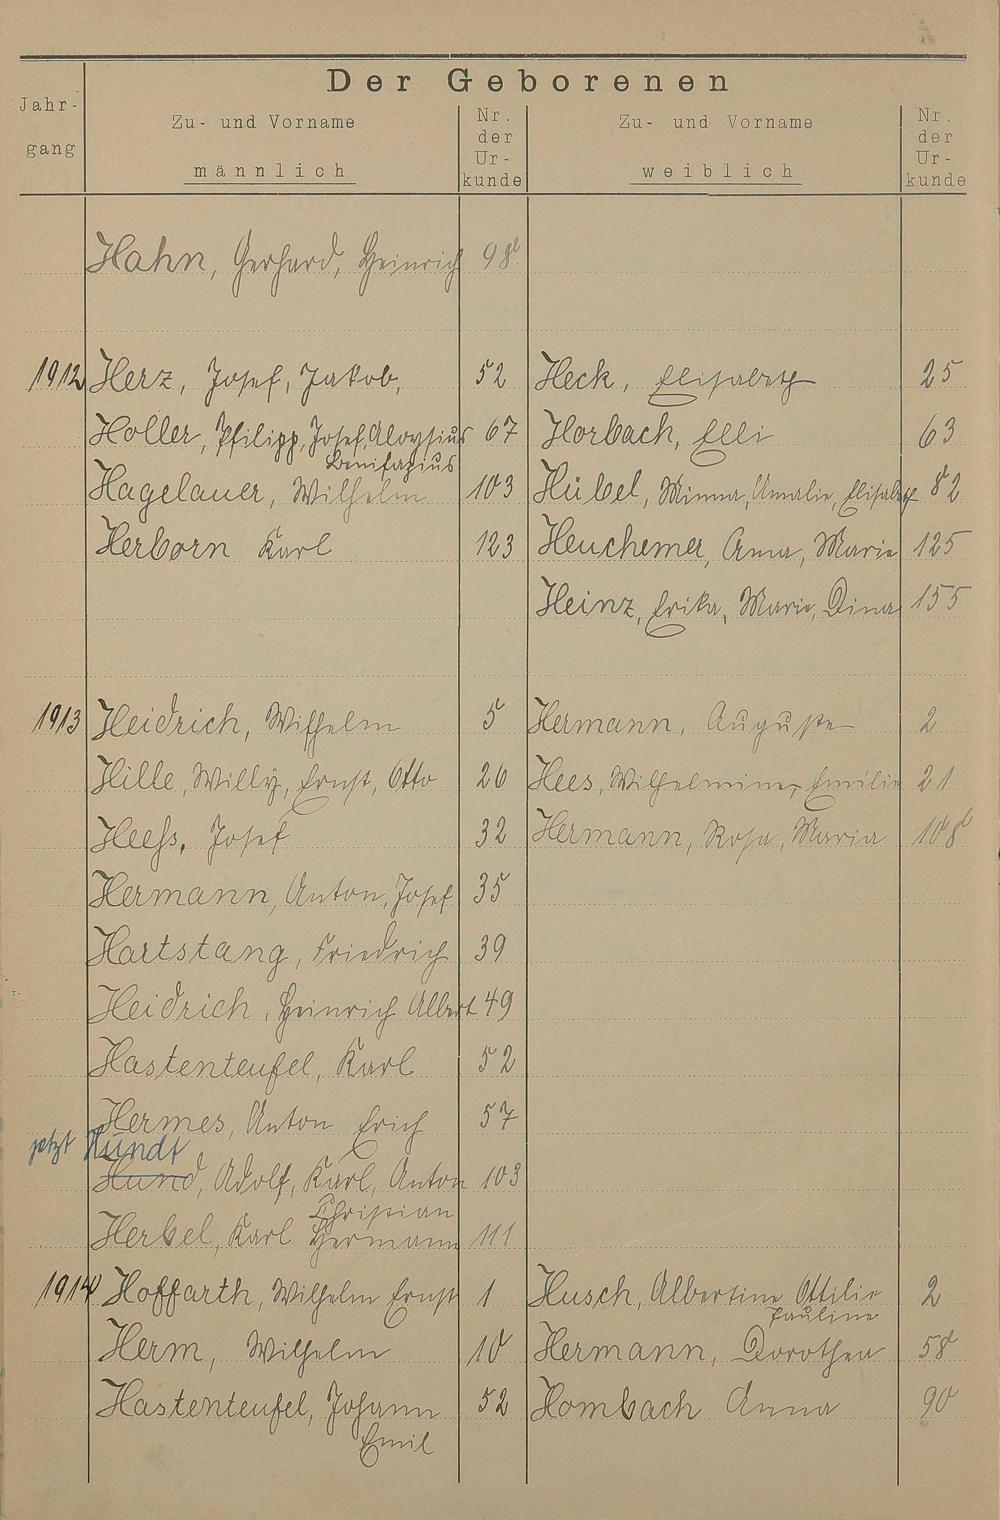 Der Geborenen
Jahr-
gang
Zu- und Vorname
männlich
Nr.
der
Ur-
kunde
Zu- und Vorname
weiblich
Nr.
der
Ur-
kunde
Hahn, Gerhard, Heinrich 98
1912 Herz, Josef, Jakob, 52 Heck, Elisabeth 25
Holler, Philipp, Josef, Aloysius 67 Horbach, Elli 63
Bonifazius
Hagelauer, Wilhelm 103 Hübel, Minna, Amalie, Elisabeth 82
Herborn Karl 123 Heuchemer, Anna, Marie 125
Heinz, Erika, Marie, Dina 155
1913 Heidrich, Wilhelm 5 Hermann, Auguste 2
Hille, Willy, Ernst, Otto 26 Hees, Wilhelmine, Emilie 21
Heeß, Josef 32 Hermann, Rosa, Maria 108
Hermann, Anton, Josef 35
Hartstang, Friedrich 39
Heidrich, Heinrich Albert 49
Hastenteufel, Karl 52
Hermes, Anton Erich 57
jetzt Hundt
Hund, Adolf, Karl, Anton 103
Christian
Herbel, Karl Hermann 111
1914 Hoffarth, Wilhelm Ernst 1 Husch, Albertine Ottilie 2
Pauline
Herm, Wilhelm 10 Hermann, Dorothea 58
Hastenteufel, Johann 52 Hombach Anna 90
Emil